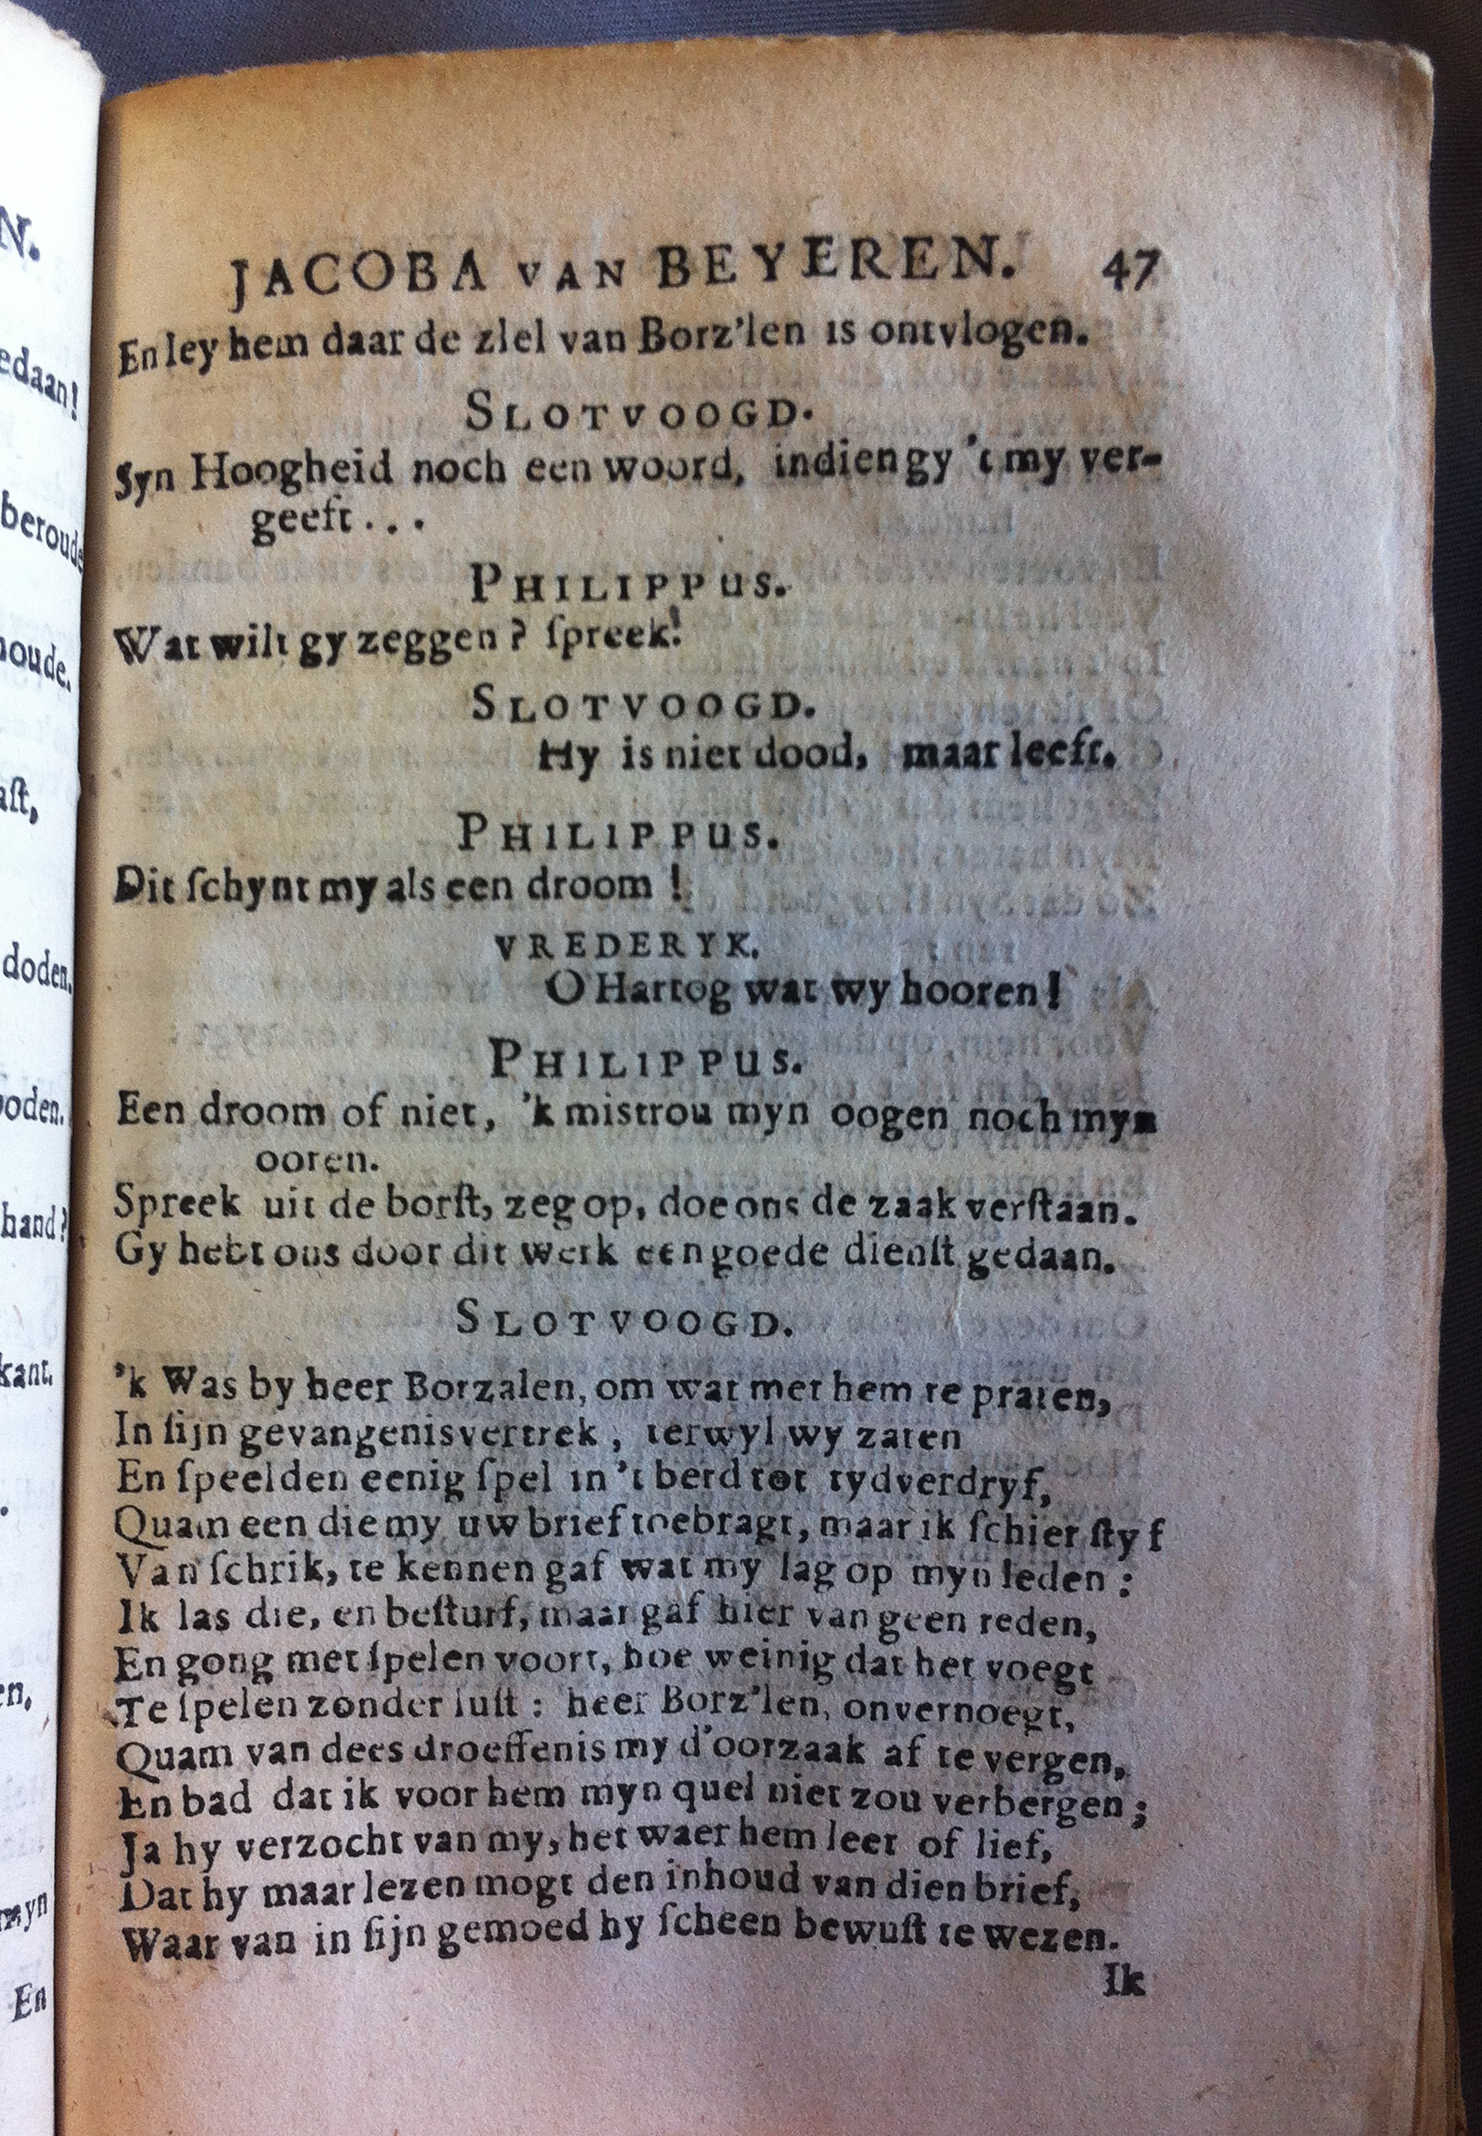 JACOBA VAN BEYEREN. 47
En ley hem daar de ziel van Borz'len is ontvlogen.
SLOTVOOGD.
Syn Hoogheid noch een woord, indien gy 't my ver-
geeft...
PHILIPPUS.
Wat wilt gy zeggen? ſpreek!
SLOTVOOGD.
Hy is niet dood, maar leeft.
PHILIPPUS.
Dit ſchynt my als een droom!
VREDERYK.
O Hartog wat wy hooren!
PHILIPPUS.
Een droom of niet, 'k mistrou myn oogen noch myn
ooren.
Spreek uit de borſt, zeg op, doe ons de zaak verſtaan.
Gy hebt ons door dit werk een goede dienſt gedaan.
SLOTVOOGD.
'k Was by heer Borzalen, om wat met hem te praten,
In ſijn gevangenisvertrek, terwyl wy zaten
En ſpeelden eenig ſpel in 't berd tot tydverdryf,
Quam een die my uw brief toebragt, maar ik ſchier ſtyf
Van ſchrik, te kennen gaf wat my lag op myn leden:
Ik las die, en beſturf, maar gaf hier van geen reden,
En gong met ſpelen voort, hoe weinig dat het voegt
Te ſpelen zonder luſt: heer Borz'len, onvernoegt,
Quam van dees droeffenis my d'oorzaak af te vergen,
En bad dat ik voor hem myn quel niet zou verbergen;
Ja hy verzocht van my, het waer hem leet of lief,
Dat hy maar lezen mogt den inhoud van dien brief,
Waar van in ſijn gemoed hy ſcheen bewuſt te wezen.
Ik
N.
edaan!
beroude
houde.
aſt,
doden.
oden.
hand?
kant.
en.
myn
En